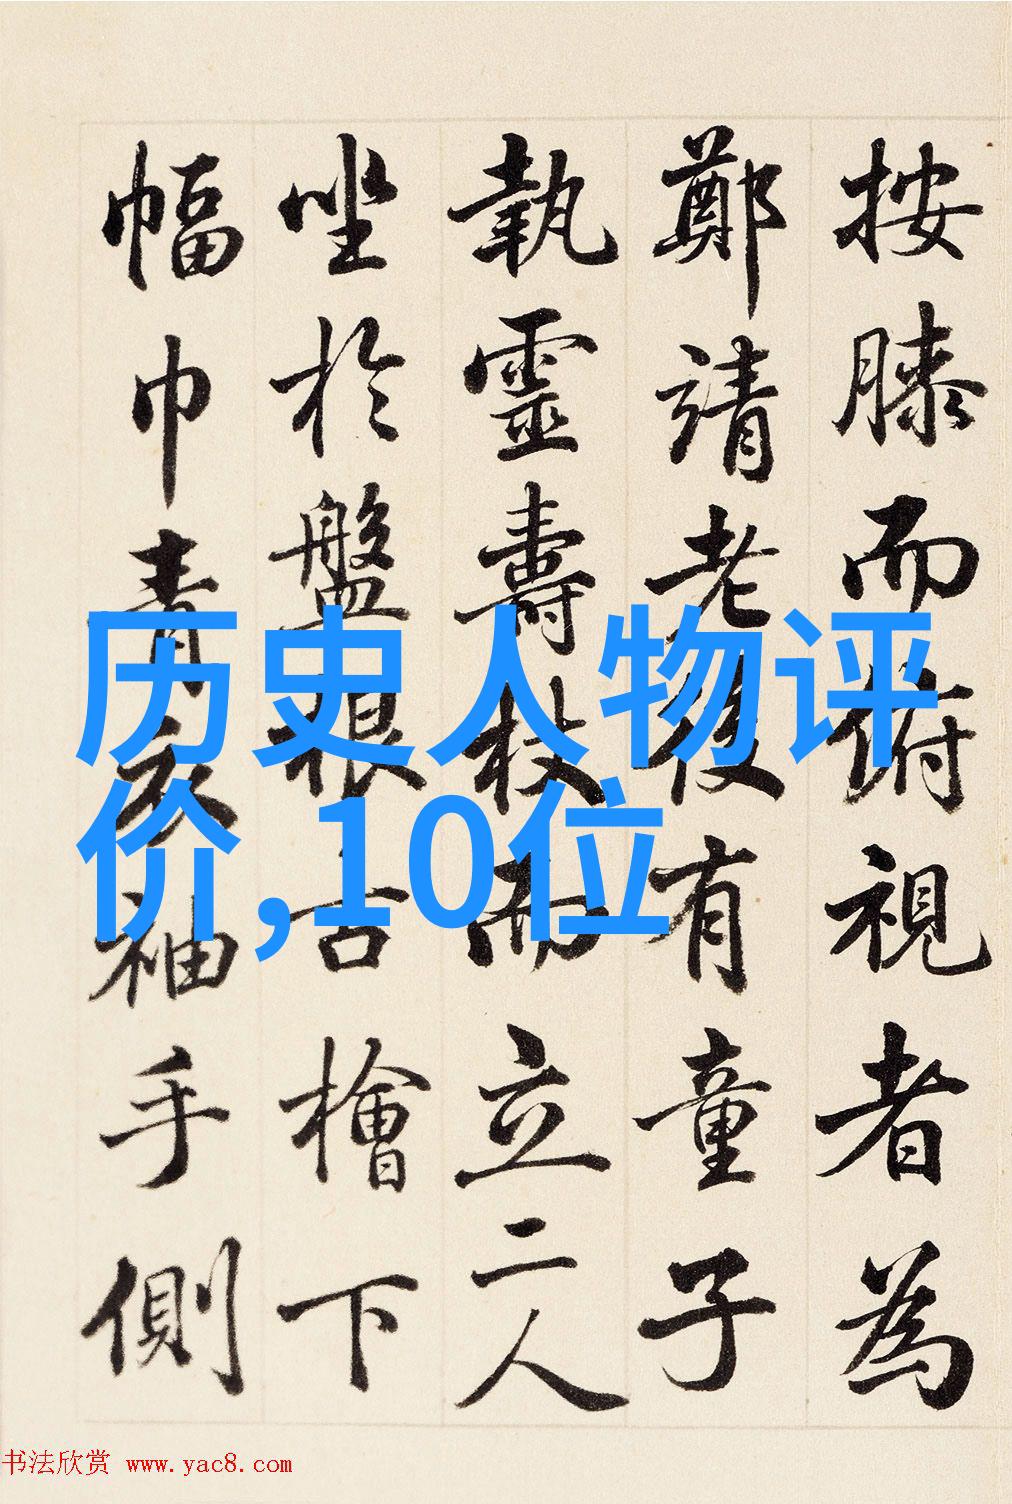 按膝而俯視者為
鄭靖老後有童子
執靈壽杖而立二人
坐於盤根古檜下
幅巾青衣袖手側
历史人物评
价,10位
书法欣赏 www.yac8.com